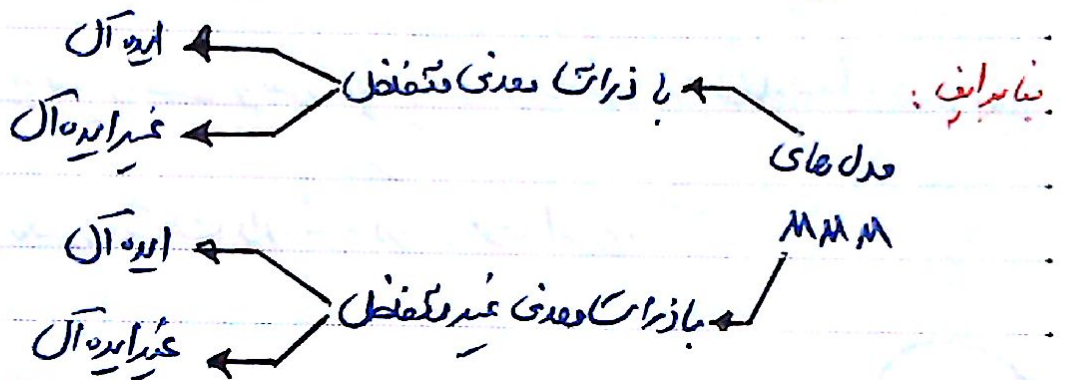 بنابراین :
مدل های
MMM
با ذرات معدنی متخلخل
ایده آل
غیر ایده آل
با ذرات معدنی غیر متخلخل
ایده آل
غیر ایده آل